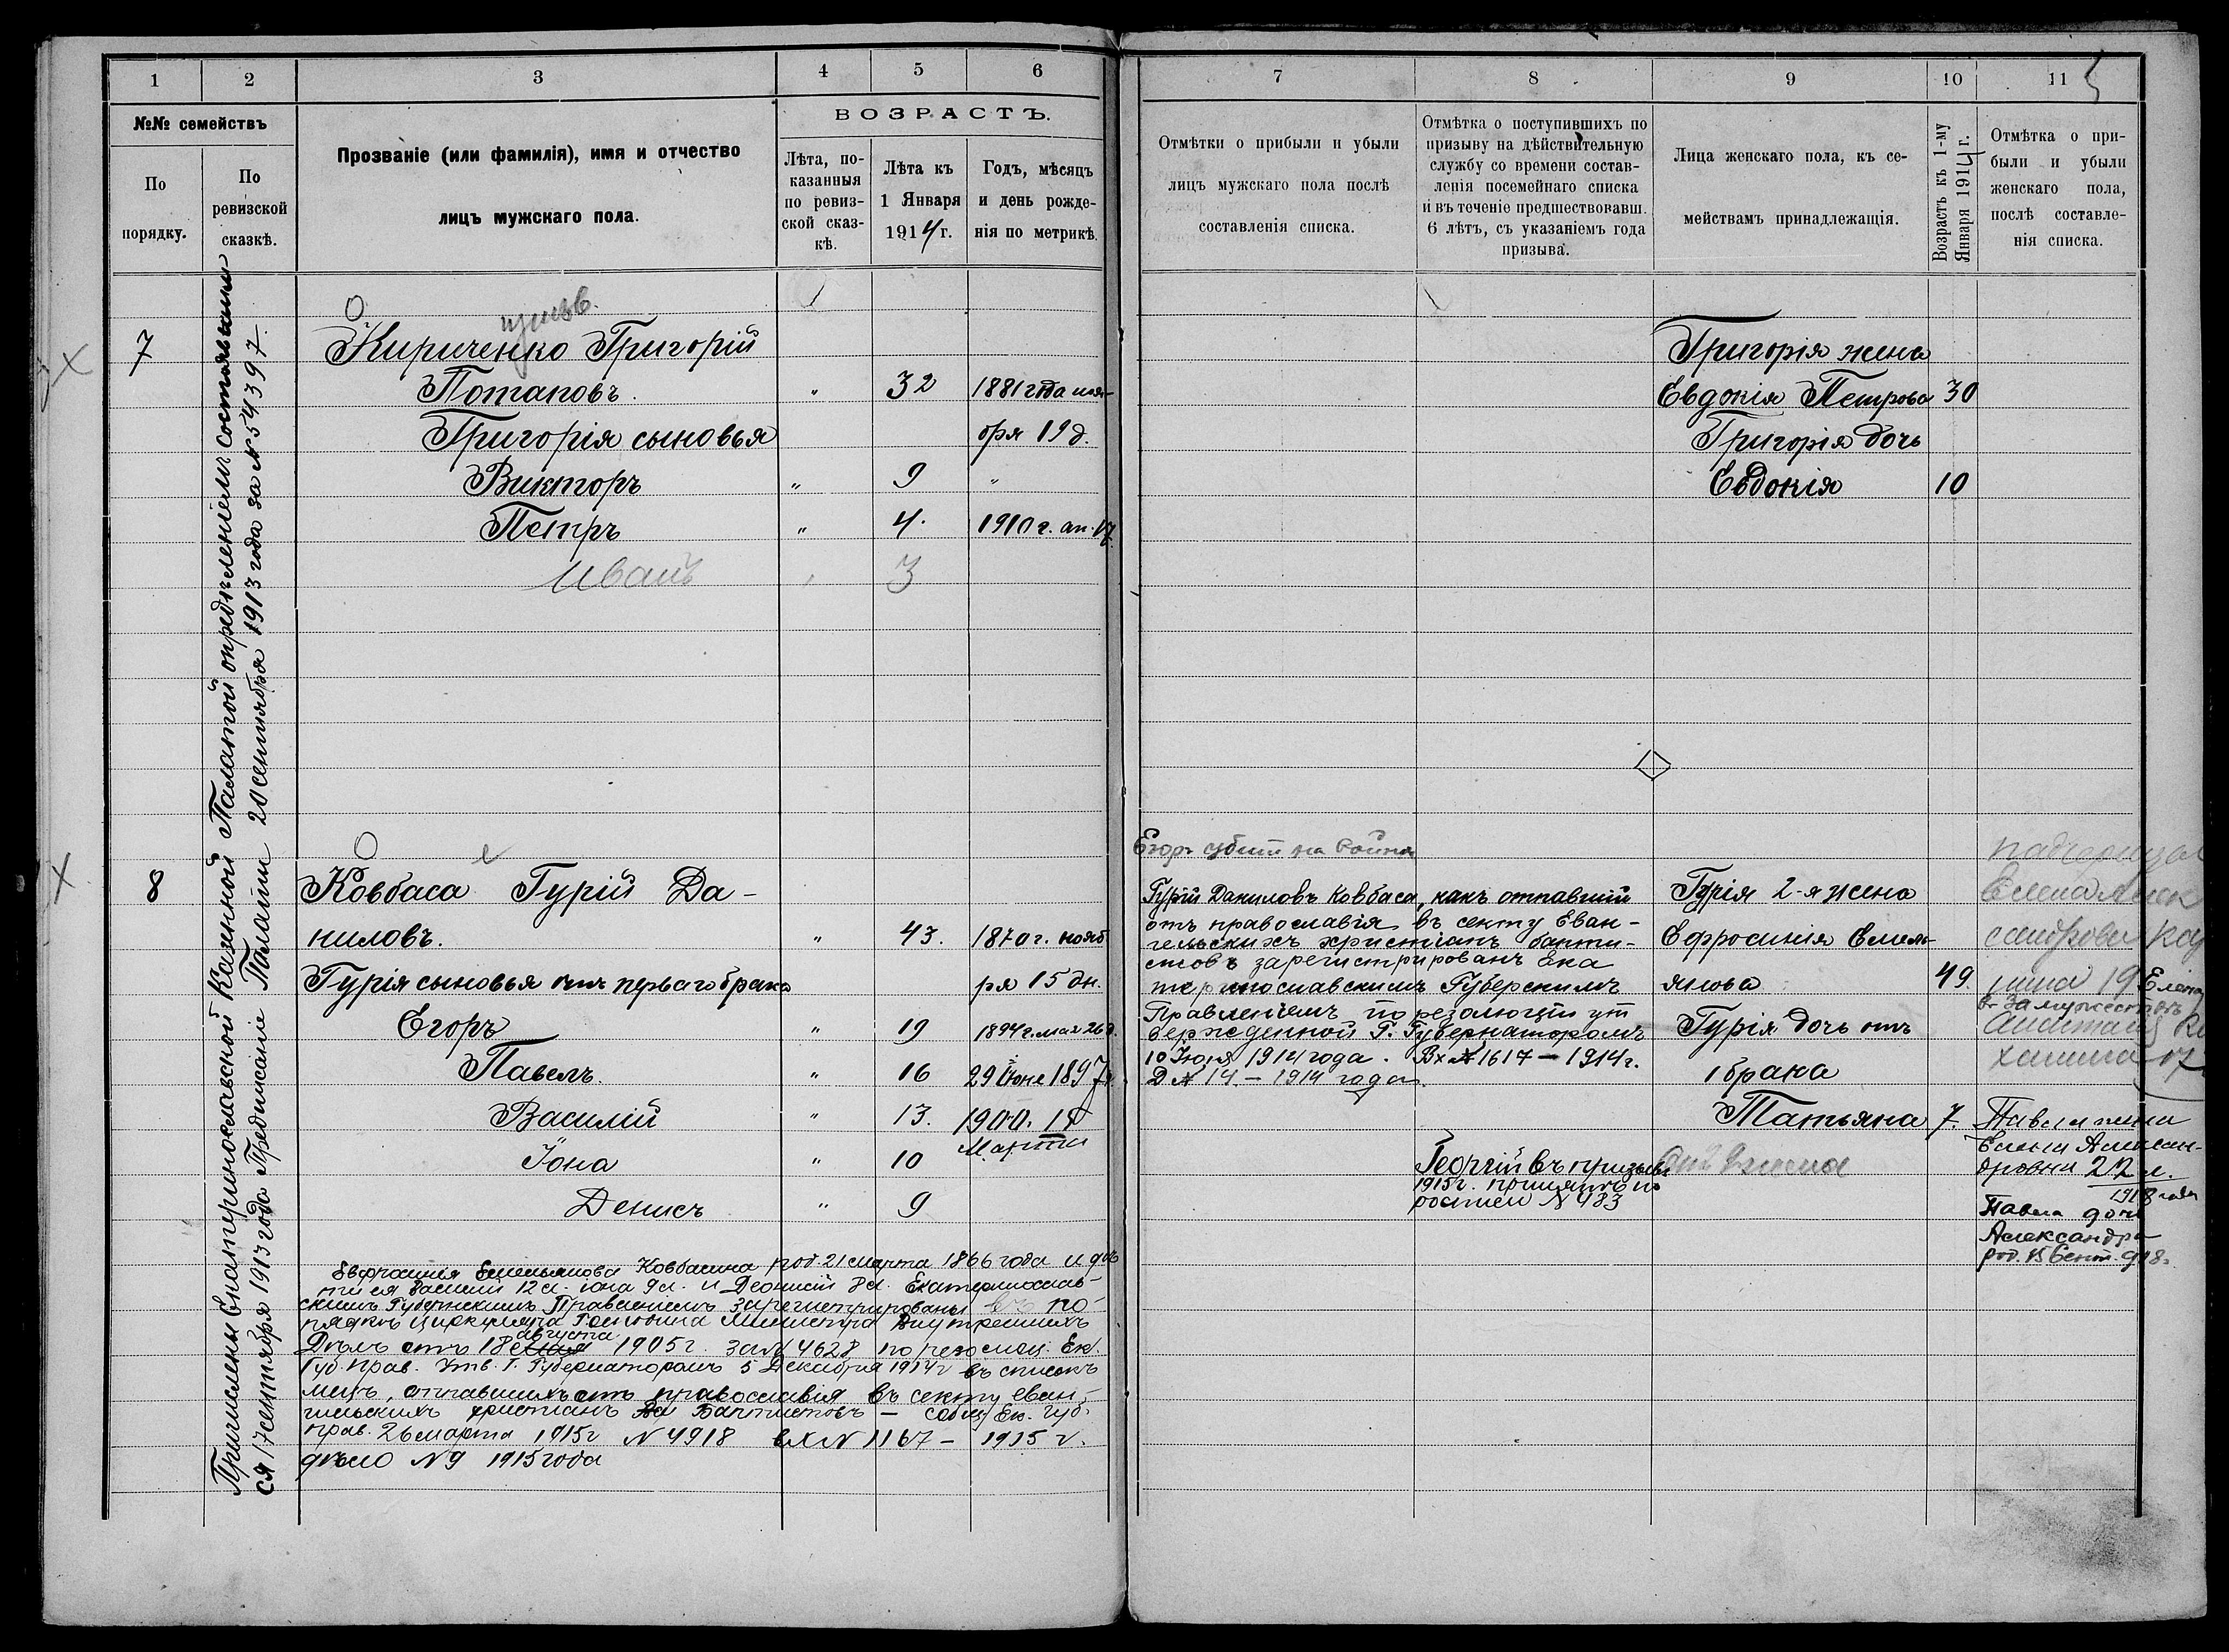 1
2
3
4
5
6
№№ семействъ
По порядку.
По ревизской сказкѣ.
Прозваніе (или фамилія), имя и отчество
лицъ мужскаго пола.
ВОЗРАСТЪ.
Лѣта, по-
казанныя
по ревиз-
ской сказ-
кѣ.
Лѣта къ
1 Января
1914 г.
Годъ, мѣсяцъ
и день рожде-
нія по метрикѣ.
Причислены Екатеринославской Казенной Палатой опредѣленіемъ состоявшим-
ся 17 сентября 1913 года Предписаніе Палаты 20 сентября 1913 года за № 54397.
7
Кириченко Григорій
Потаповъ. " 32 1881 года ноя-
Григорія сыновья бря 19 д.
Викторъ " 9 "
Петръ " 4. 1910 г. ап. 17.
Иванъ " 3
8
Ковбаса Гурій Да-
ниловъ. " 43. 1870 г. нояб
Гурія сыновья отъ перваго брака ря 15 дн.
Егоръ " 19 1894 г. мая 26 д.
Павелъ. " 16 29 Іюня 1897 г.
Василій " 13. 1900. 17
Марта
Іона " 10
Денисъ " 9
Евфросинія Емельянова Ковбасина род. 21 марта 1866 года и дѣ
ти ея Василій 12 л. Іона 9 л. и Діонисій 8 л. Екатеринослав-
скимъ Губернскимъ Правленіемъ зарегистрированы въ по-
рядкѣ циркуляра Господина Министра Внутреннихъ
августа
Дѣлъ отъ 18 1905 г. за № 4628 по резолюц. Ек.
Губ. Прав. Утв. Г. Губернаторомъ 5 Декабря 1914 г въ списокъ
лицъ, отпавшихъ отъ православія въ секту еван-
гельскихъ христіанъ Баптистовъ — Ек. Губ.
прав. 26 марта 1915 г № 4918 вх № 1167 - 1915 г.
дѣло № 9 1915 года
7
8
9
10
11
5
Отмѣтки о прибыли и убыли
лицъ мужскаго пола послѣ
составленія списка.
Отмѣтка о поступившихъ по
призыву на дѣйствительную
службу со времени состав-
ленія посемейнаго списка
и въ теченіе предшествовавш.
6 лѣтъ, съ указаніемъ года
призыва.
Лица женскаго пола, къ се-
мействамъ принадлежащія.
Возрастъ къ 1-му
Января 1914 г.
Отмѣтка о при-
были и убыли
женскаго пола,
послѣ составле-
нія списка.
Григорія жена
Евдокія Петрова 30
Григорія дочь
Евдокія 10
Егоръ убитъ на войнѣ
Гурій Даниловъ Ковбаса, какъ отпавшій
отъ православія въ секту Еван-
гельскихъ христіанъ бапти-
стовъ зарегистрированъ Ека
теринославскимъ Губернскимъ
Правленіемъ по резолюціи ут
вержденной Г. Губернаторомъ
10 Іюня 1914 года. Вх № 1617 - 1914 г.
Д № 14. - 1914 года.
Георгій въ призывъ
1915 г. принятъ по
росписи № 483
Гурія 2-я жена
Ефросинія Емель-
янова 49.
Гурія дочь отъ
1 брака
Татьяна 7.
падчерица
Елена Алек
сандрова
19 Елена
въ замужествѣ
17
Павла жена
Елена Алексан-
дровна 22 л.
1918 года
Павла дочь
Александра
род. 15 Сент. 918.